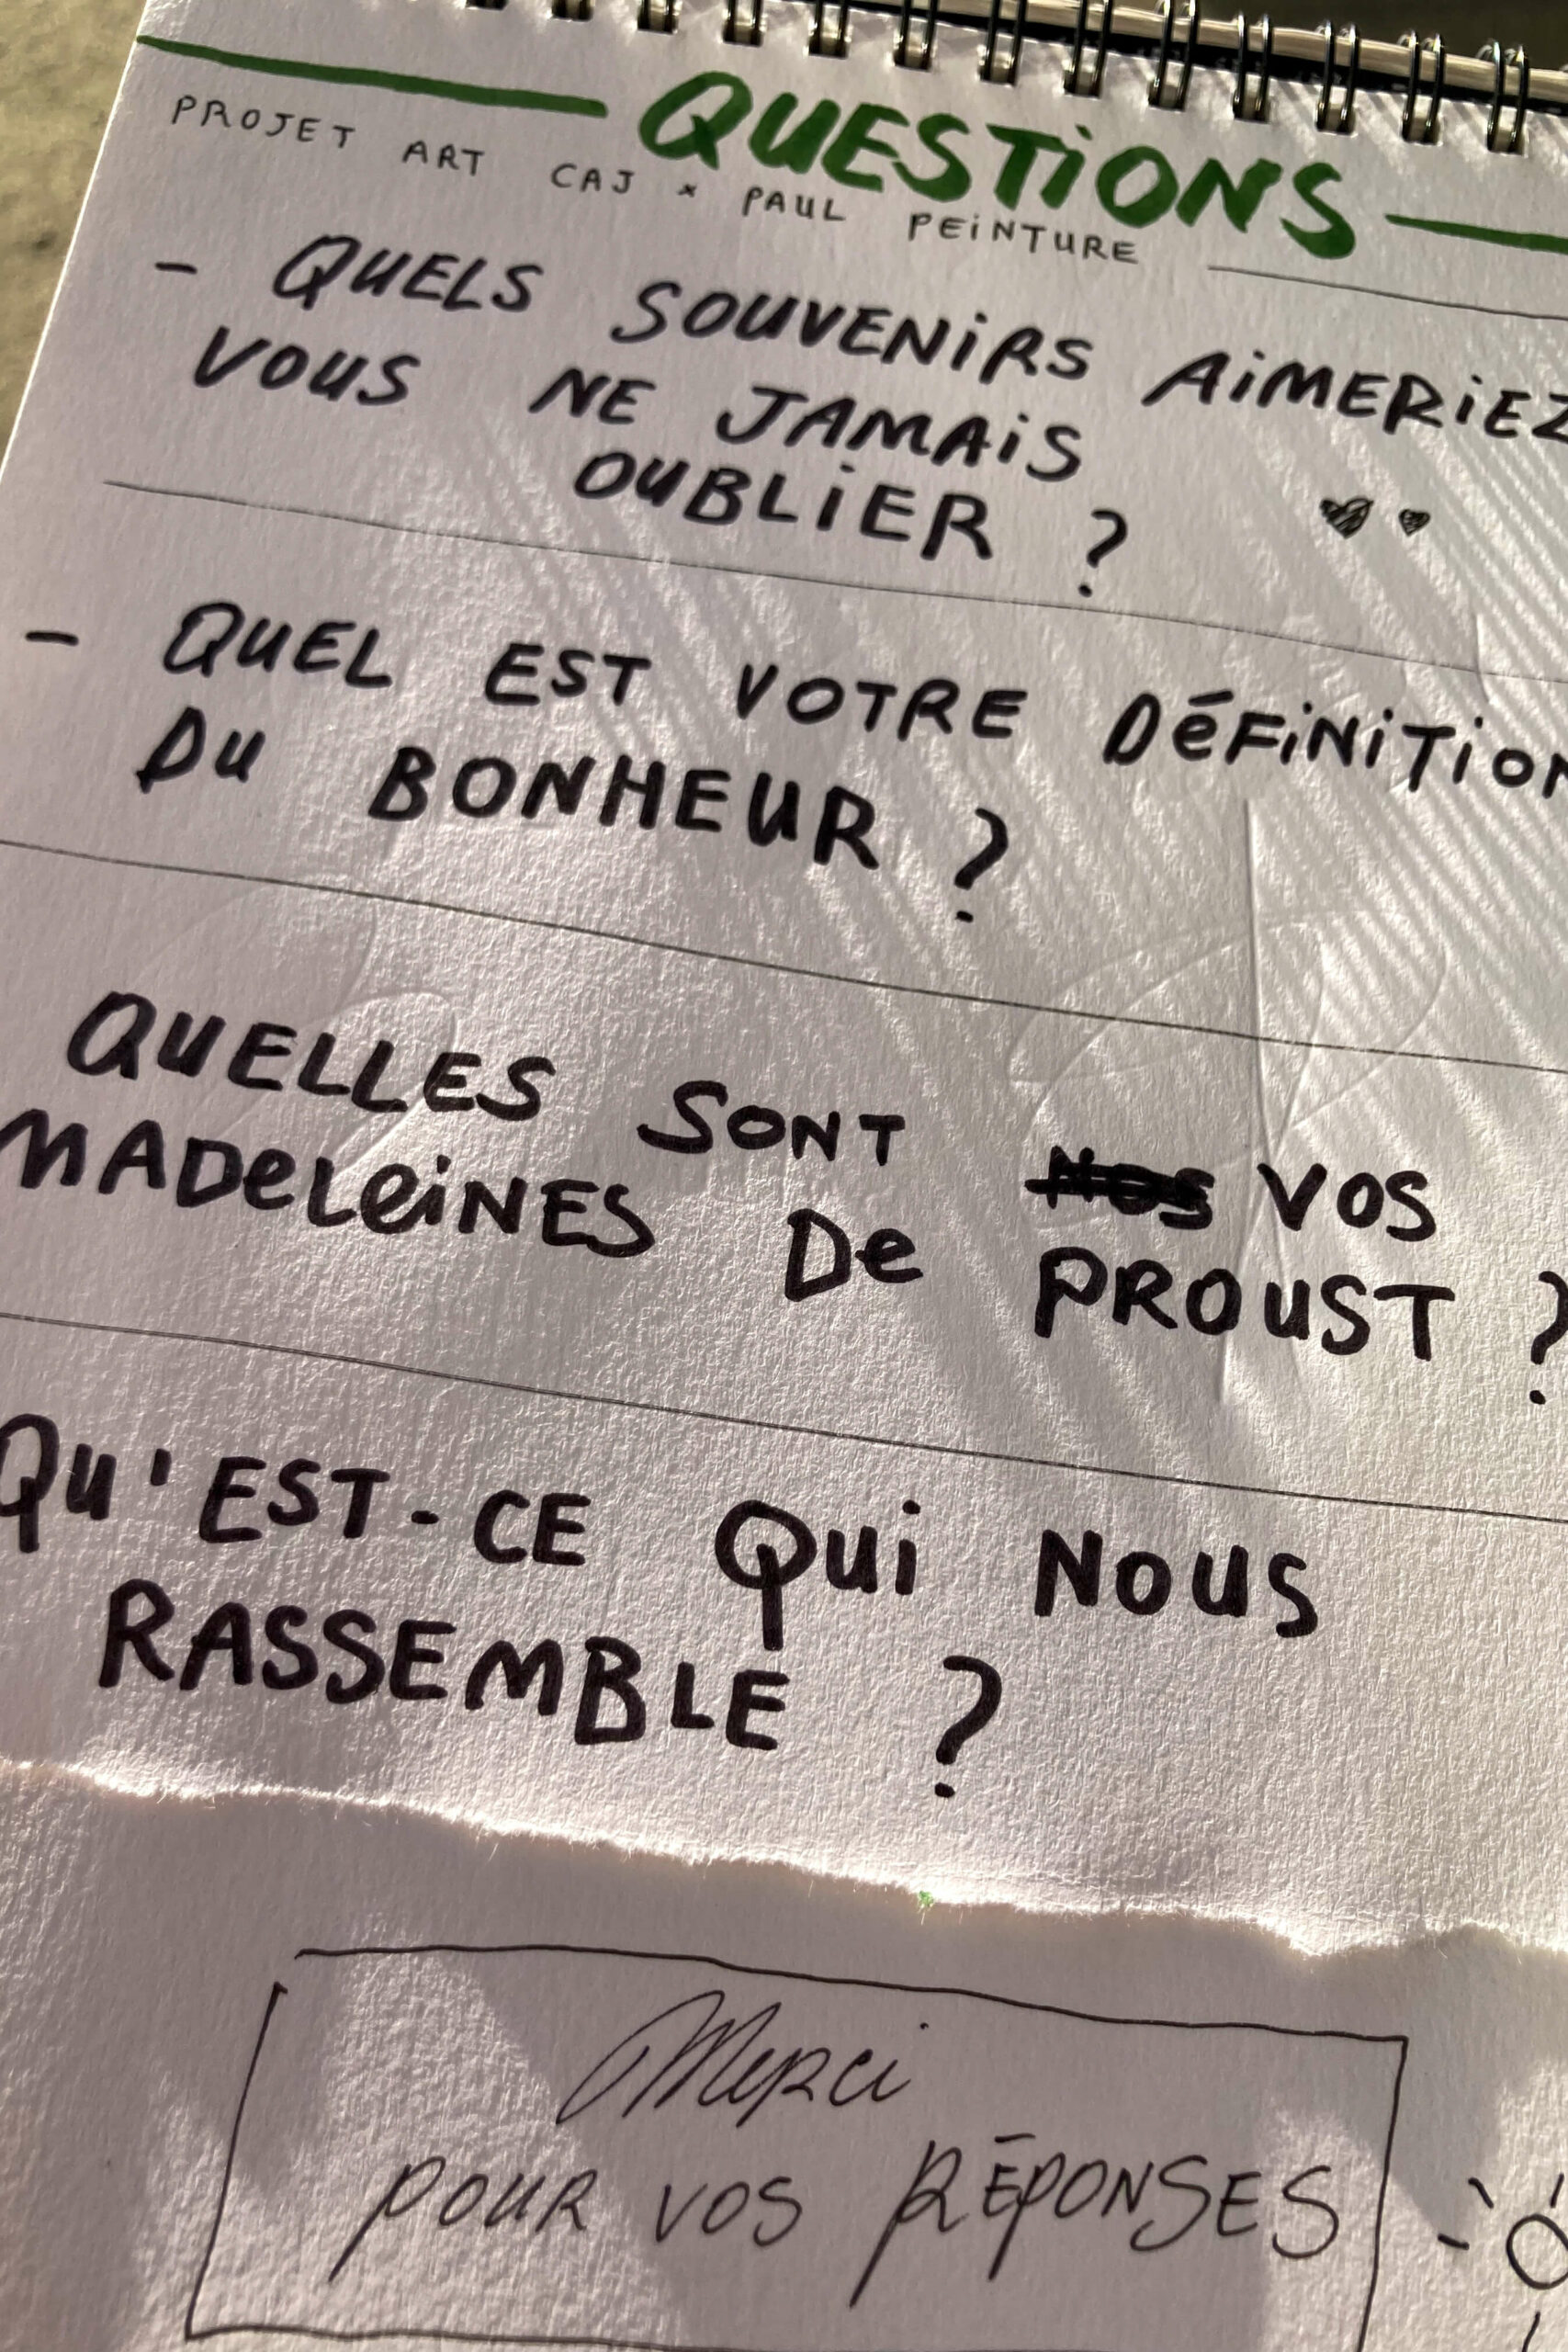 QUESTIONS
PROJET ART CAJ × PAUL PEINTURE
- QUELS SOUVENIRS AIMERIEZ
VOUS NE JAMAIS
OUBLIER ?
- QUEL EST VOTRE DÉFINITION
DU BONHEUR ?
QUELLES SONT NOS VOS
MADELEINES DE PROUST ?
QU'EST-CE QUI NOUS
RASSEMBLE ?
Merci
POUR VOS RÉPONSES